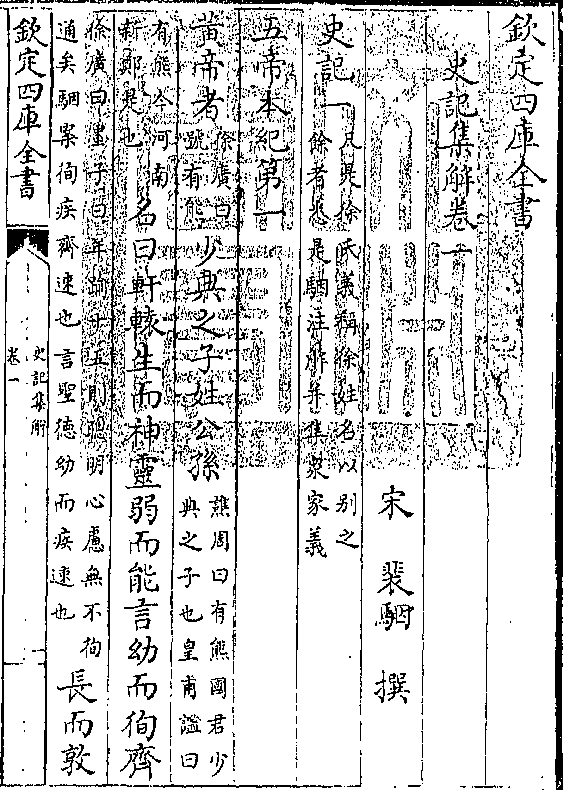 欽定四庫全書
史記集解卷一
宋　裴駰　撰
史記一
凡是徐氏義稱徐姓名以別之
餘者悉是駰注解并集衆家義
五帝本紀第一
黃帝者
徐廣曰
號有熊
少典之子姓公孫
譙周曰有熊國君少
典之子也皇甫謐曰
有熊今河南
新鄭是也
名曰軒轅生而神靈弱而能言幼而徇齊
徐廣曰墨子曰年踰十五則聰明心慮無不徇
通矣駰案徇疾齊速也言聖德幼而疾速也
長而敦
欽定四庫全書
史記集解
卷一